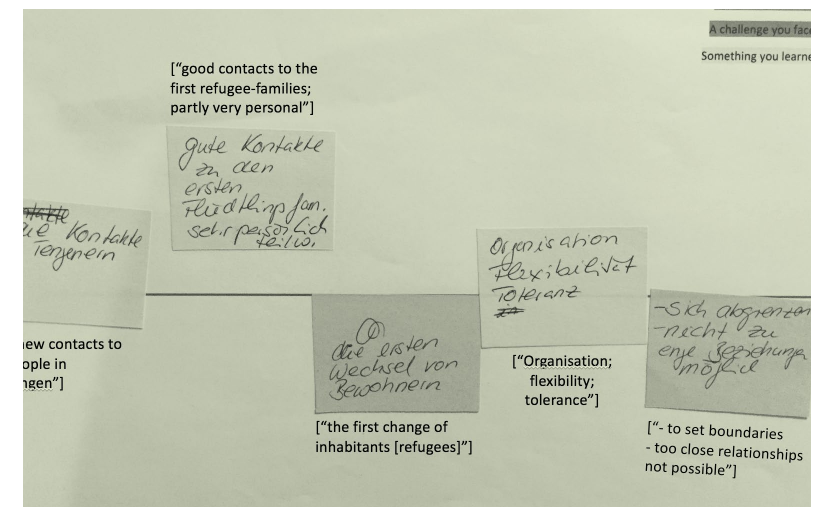 A challenge you face
Something you learne
["good contacts to the
first refugee-families;
partly very personal"]
gute Kontakte
zu den
ersten
Flüchtlingsfam.
sehr persönlich
teilw.
Kontakte
new contacts to
ople in
ngen"]
die ersten
Wechsel von
Bewohnern
["the first change of
inhabitants [refugees]"]
Organisation
Flexibilität
Toleranz
["Organisation;
flexibility;
tolerance"]
-sich abgrenzen
-nicht zu
enge Beziehungen
möglich
["- to set boundaries
- too close relationships
not possible"]